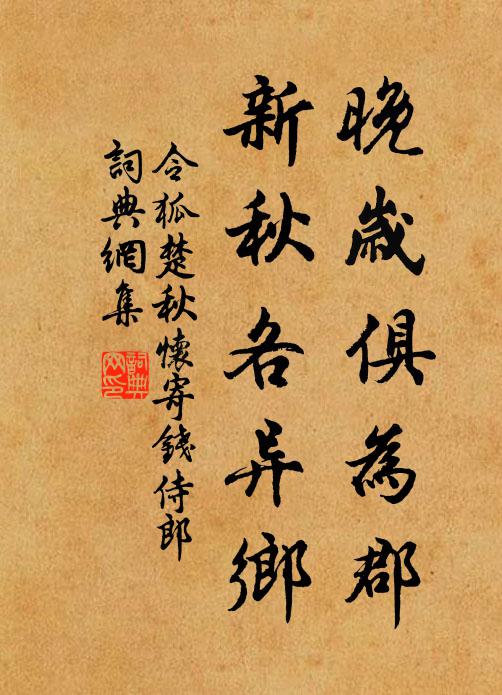 晚歲俱為郡
新秋各异鄉
令狐楚秋懷寄錢侍郎
詞典網集
詞典網印